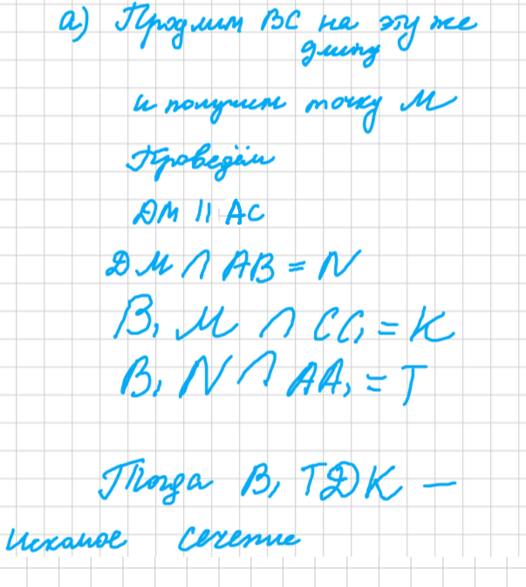 а) Продлим BC на эту же
длину
и получим точку M
Проведём
DM || AC
DM ∩ AB = N
B₁M ∩ CC₁ = K
B₁N ∩ AA₁ = T
Тогда B₁TDK —
искамое сечение